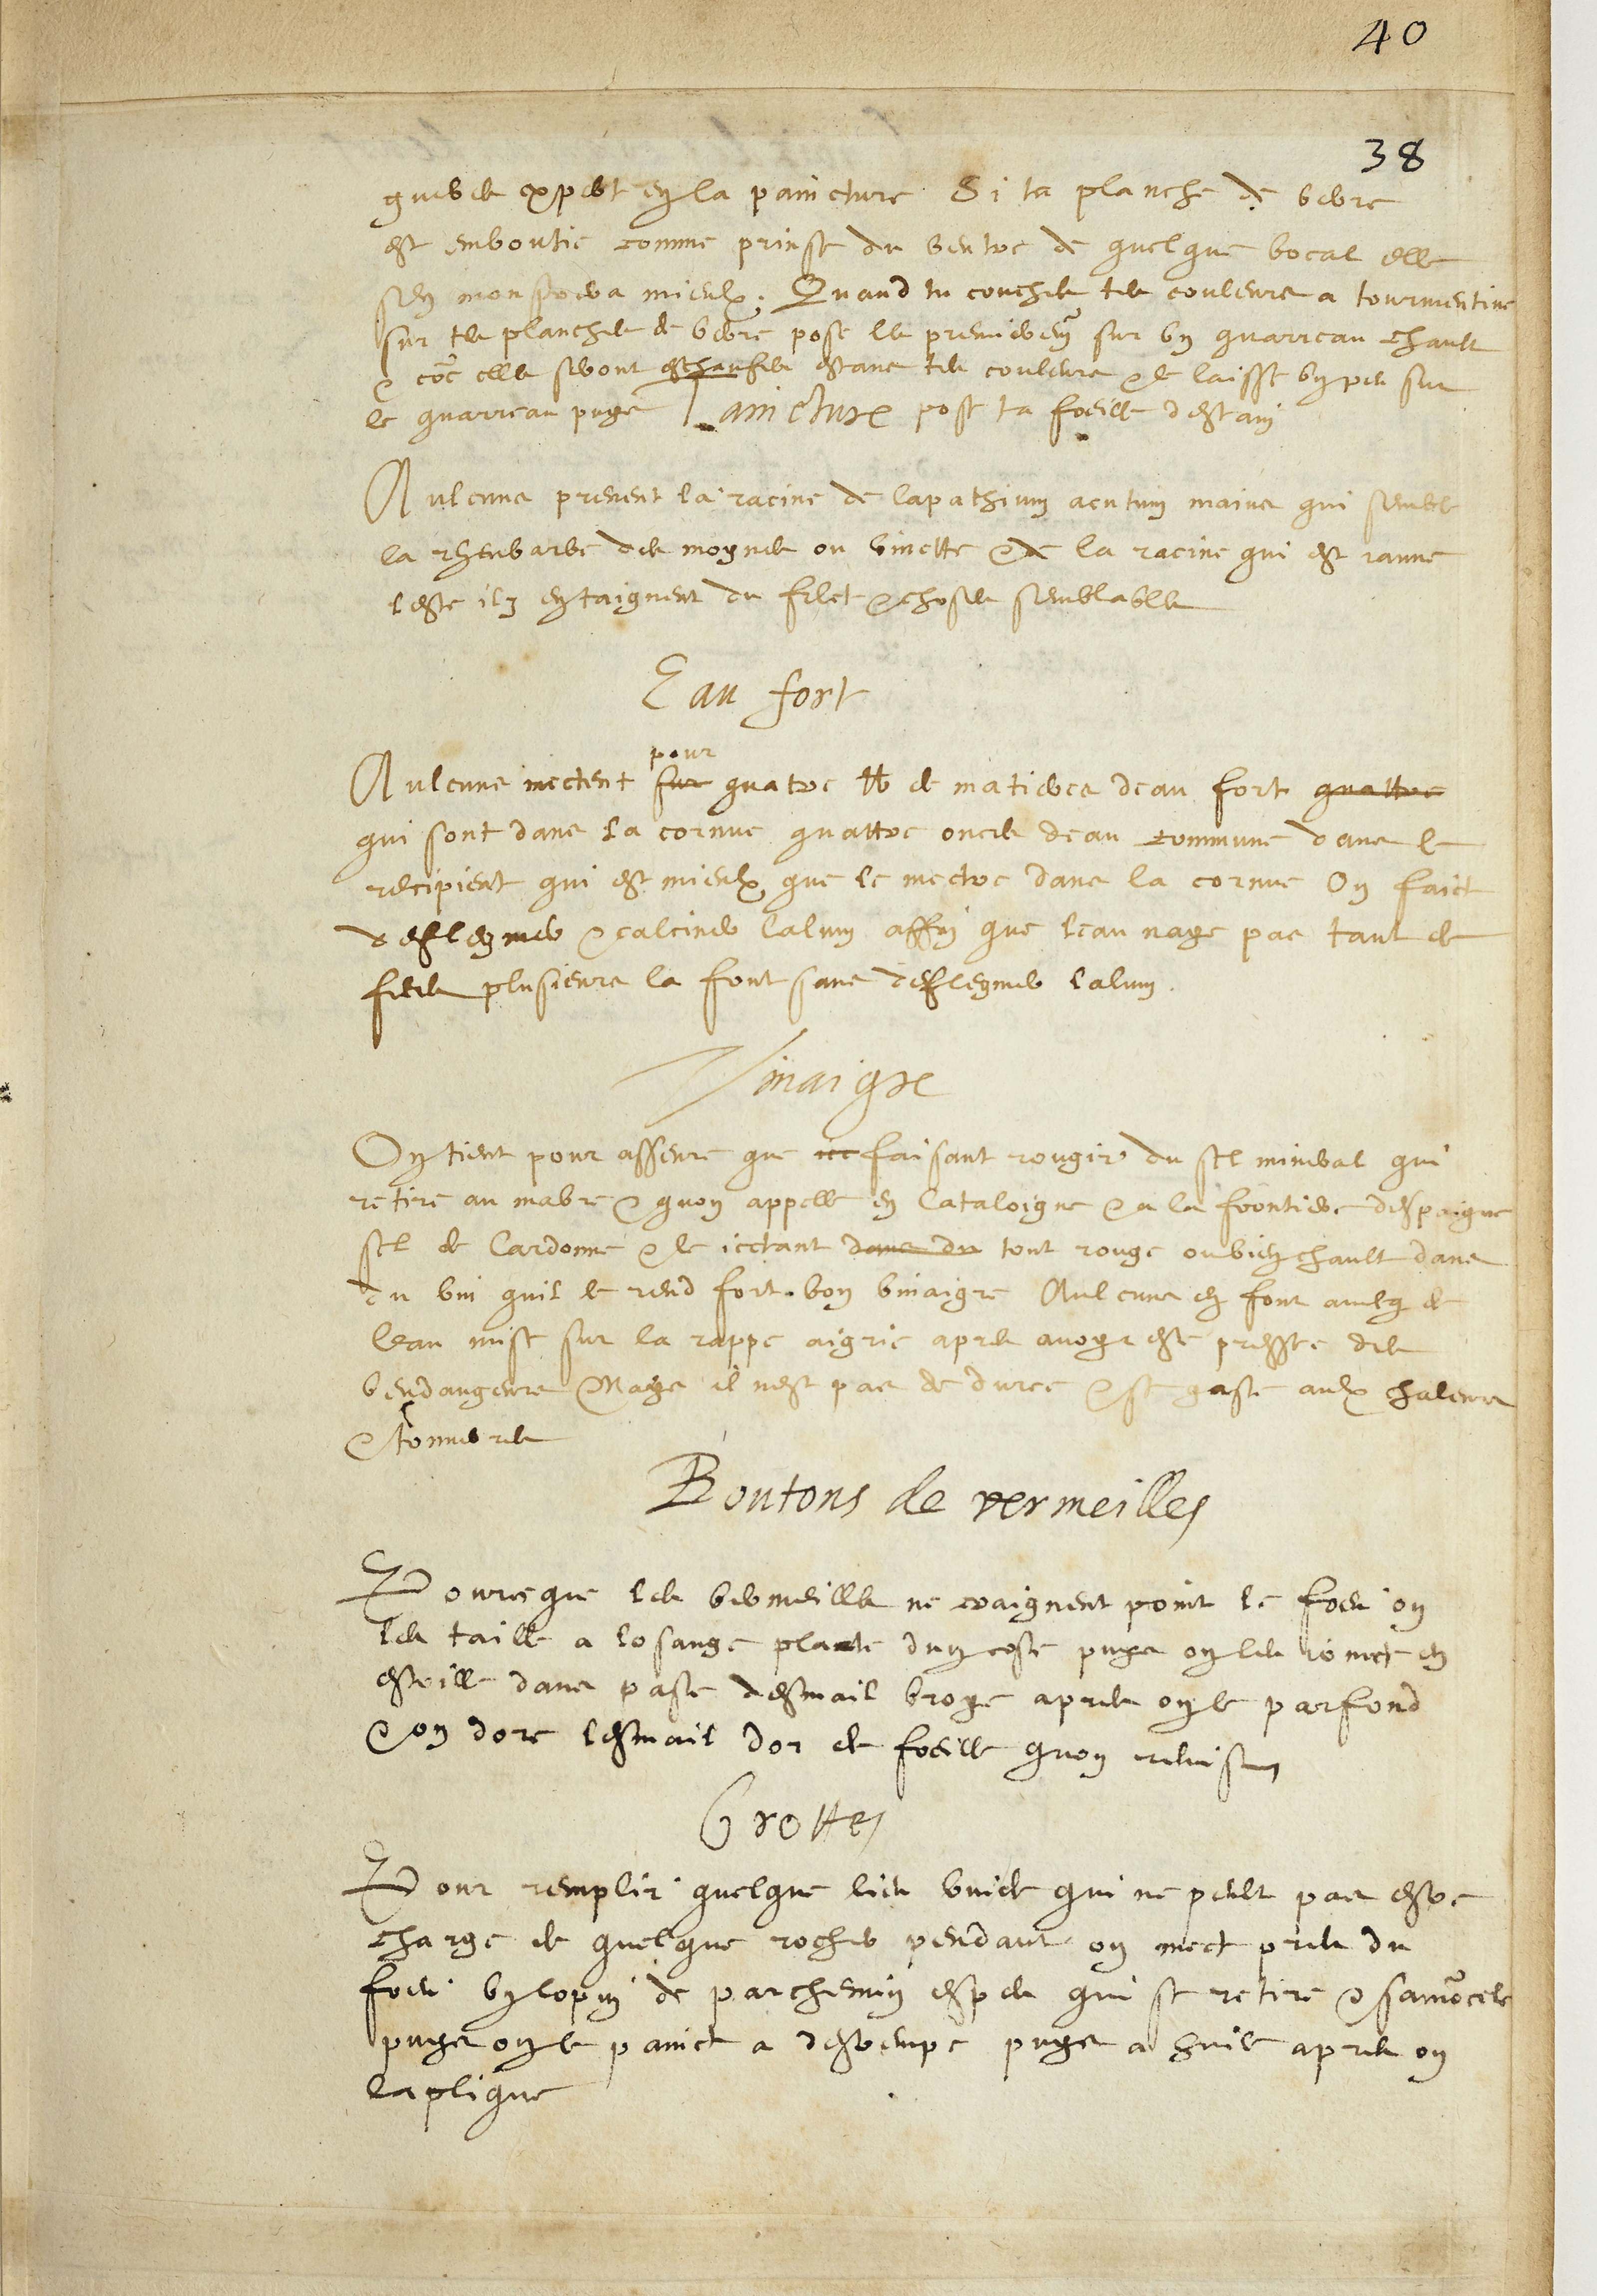 40
38
gueres expert en la paincture Si ta planche de verre
est emboutie comme prinse du ventre de quelque bocal elle
sen monstrera mieulx. Quand tu couches tes couleurs a tourmentine
sur tes planches de verre pose les premierem sur un quarreau chault
& co{mm}e elles seront eschaufees estans tes couleurs & le laisse un peu sur
le quarreau puys Taincture pose ta foeille destain
Aulcuns prenent la racine de lapathium acutum maius qui semble
la rheubarbe des moynes ou vinette & de la racine qui est jaune
leste ilz en taignent du filet & choses semblables
Eau fort
pour
Aulcuns mectent sur quatre lb de matieres deau fort quattre
qui sont dans la cornue quattre onces deau commune dans le
recipient qui est mieulx que le mectre dans la cornue On faict
deflegmer & calciner lalum affin que leau naye pas tant de
feces plusieurs la font sans deflegmer lalum.
Vinaigre
On tient pour asseure que faisant rougir du sel mineral qui
retire au mabre & quon appelle en Cataloigne & a la frontiere despaigne
sel de Cardonne & le iectant dans du tout rouge ou bien chault dans
du vin quil le rend fort bon vinaigre Aulcuns en font avecq de
leau mise sur la rappe aigrie apres avoyr este pressee des
vendangeurs Mays il nest pas de duree & se gaste aulx chaleurs
& tonnerres
Boutons de vermeilles
Pource que les vermeilles ne craignent point le foeu on
les taille a losange plante dun coste puys on les met en
estoille dans paste desmail broye apres on le parfond
& on dore lesmail dor de foeille quon
Grottes
Pour remplir quelque lieu vuide qui ne peult pas estre
charge de quelque rocher pendant on mect pres du
foeu un lopin de parchemin espes qui se retire & samoncele
puys on le painct a destrempe puys a huile apres on
laplique